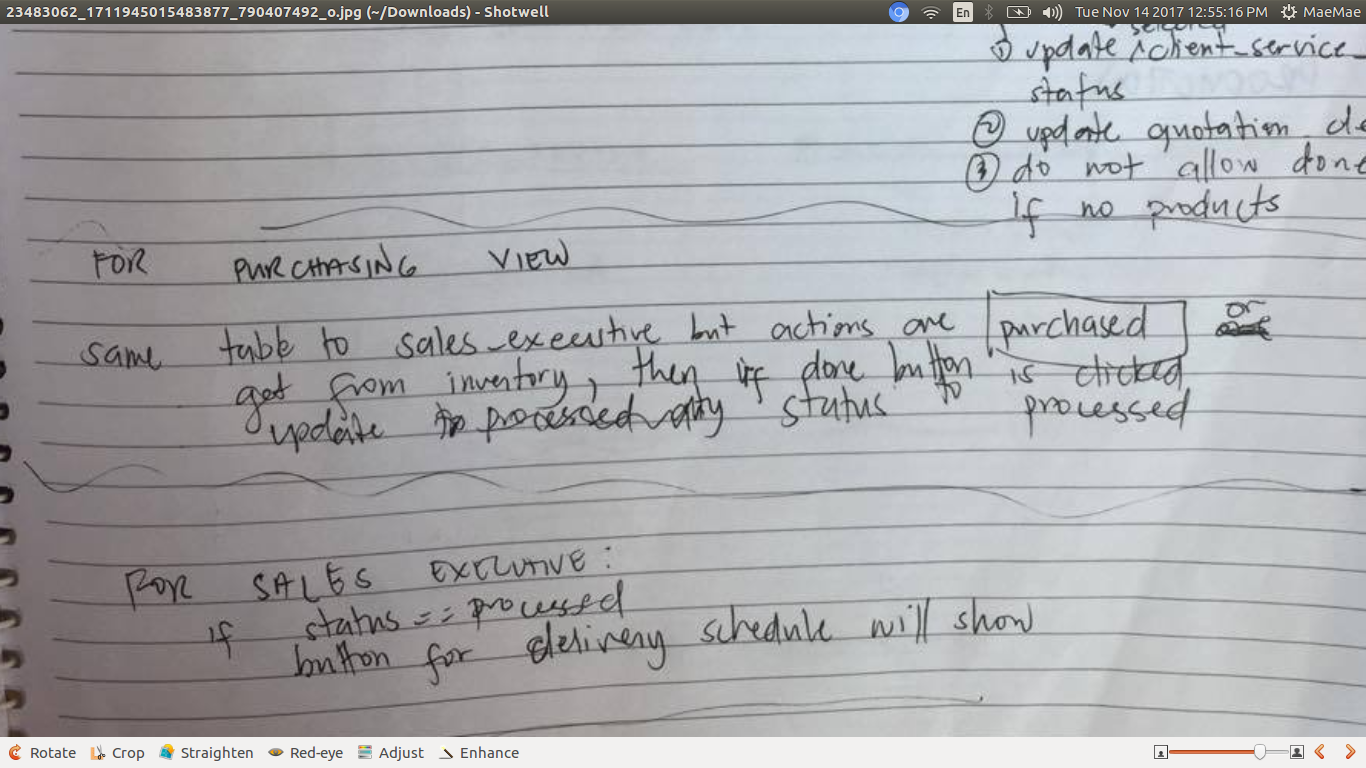 23483062_1711945015483877_790407492_o.jpg (~/Downloads) - Shotwell
En
Tue Nov 14 2017 12:55:16 PM
MaeMae
selected
① update ^client_service_
status
② update quotation
③ do not allow done
if no products
FOR PURCHASING VIEW
same table to sales_executive but actions are purchased or
get from inventory, then if done button is clicked
update status to processed
FOR SALES EXECUTIVE:
if status == processed
button for delivery schedule will show
Rotate
Crop
Straighten
Red-eye
Adjust
Enhance